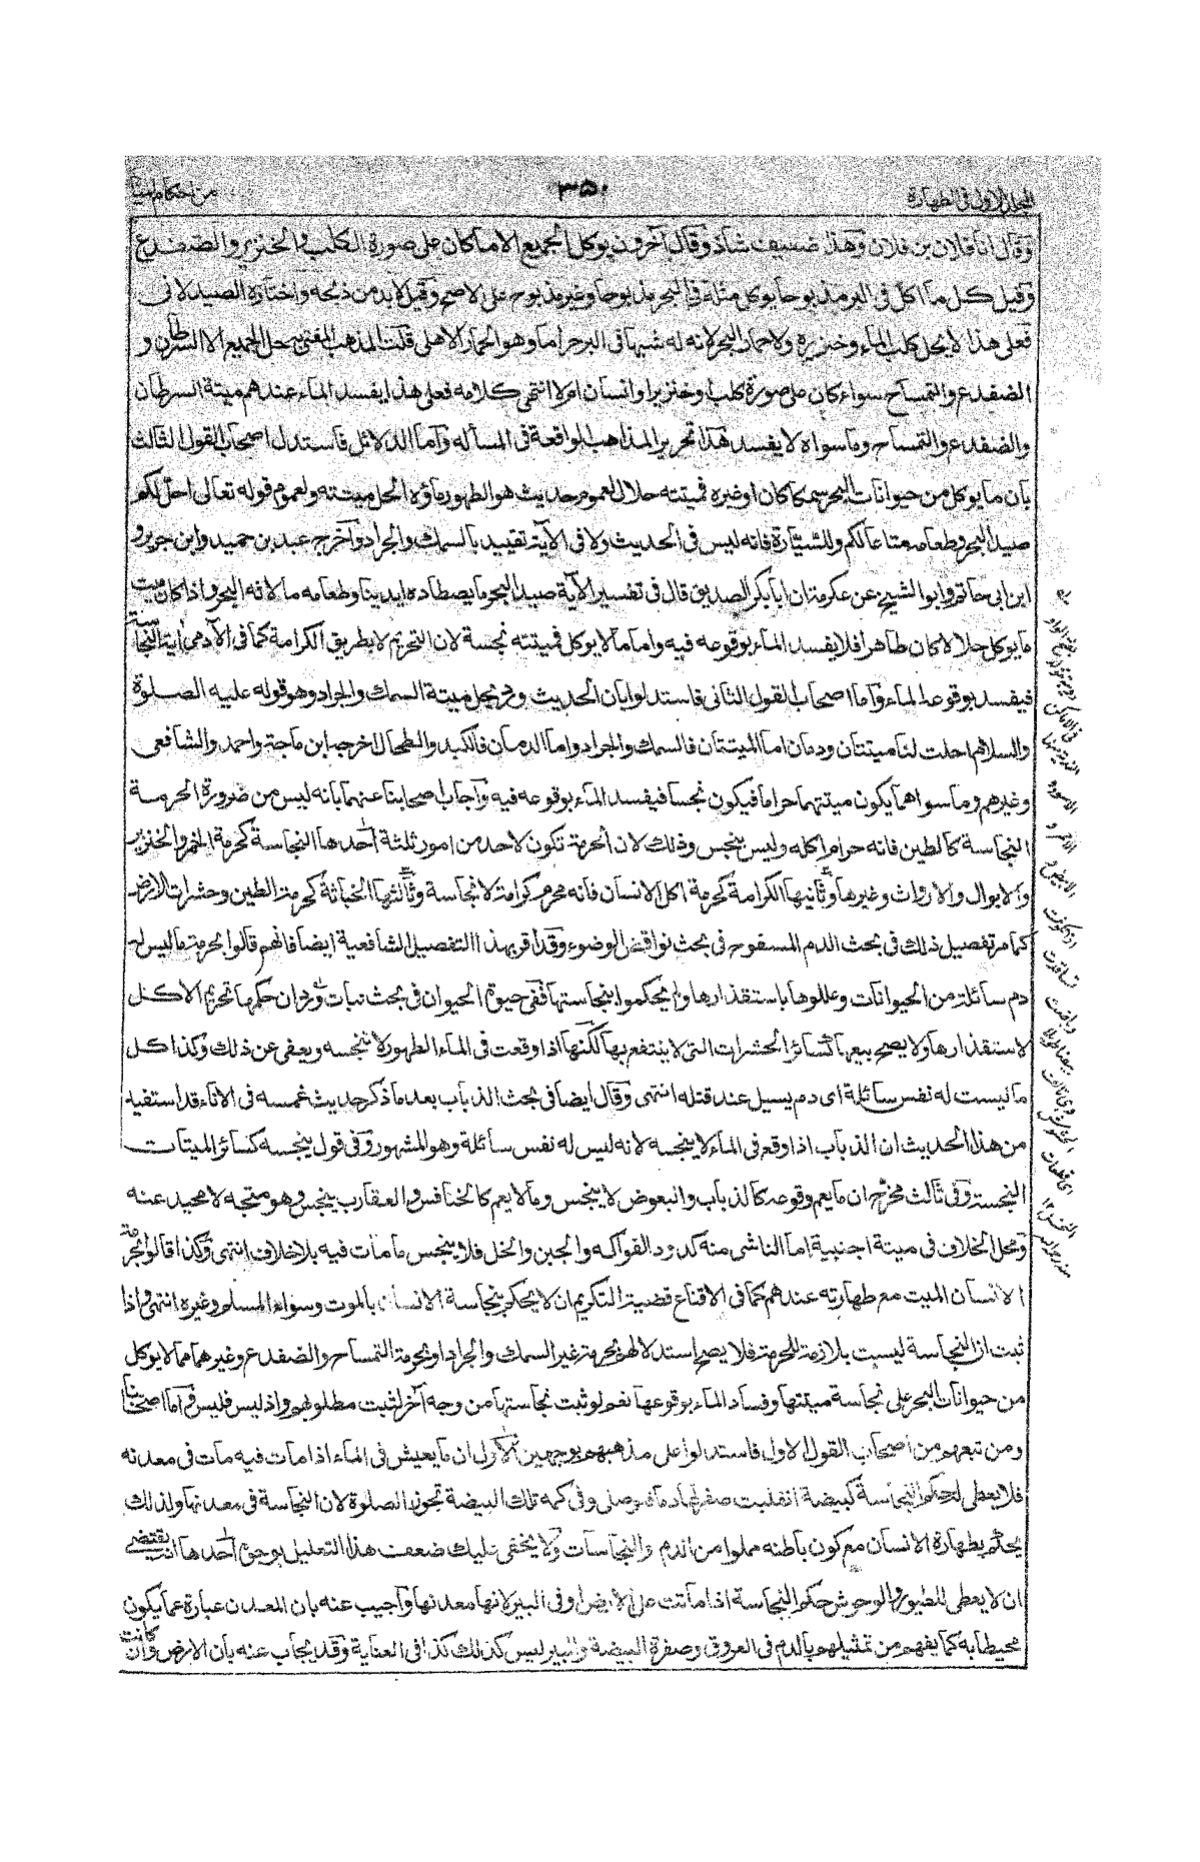 المجلد الاول فى الطهارة
٣٥٠
من احكام المياه
وقال انا فلان بن فلان وهذا ضعيف شاذ وقال آخرون يوكل الجميع الا ما كان على صورة الكلب والخنزير والضفدع
وقيل كل ما اكل فى البر مذبوحا يوكل مثله فى البحر مذبوحا وغير مذبوح على الاصح وقيل لابد من ذبحه واختاره الصيدلانى
فعلى هذا لا يحل كلب الماء وخنزيره ولا حمار البحر لانه له شبها فى البر حراما وهو الحمار الاهلى قلت المذهب المفتى به حل الجميع الا السرطان و
الضفدع والتمساح سواء كان على صورة كلب او خنزير او انسان ام لا انتهى كلامه فعلى هذا يفسد الماء عندهم ميتة السرطان
والضفدع والتمساح وما سواه لا يفسد هذا تحرير المذاهب الواقعة فى المسألة وآما الدلائل فاستدل اصحاب القول الثالث
بان ما يوكل من حيوانات البحر سمكا كان او غيره فميتته حلال لعموم حديث هو الطهور ماؤه الحل ميتته ولعموم قوله تعالى احل لكم
صيد البحر وطعامه متاعا لكم وللسيارة فانه ليس فى الحديث ولا فى الآية تقييد بالسمك والجراد وآخرج عبد بن حميد وابن جرير و
ابن ابى حاتم وابو الشيخ عن عكرمة ان ابا بكر الصديق قال فى تفسير الآية صيد البحر ما يصطاده ايدينا وطعامه ما لاثه البحر واذا كان ميت
ما يوكل حلالا كان طاهرا فلا يفسد الماء بوقوعه فيه واما ما لا يوكل فميتته نجسة لان التحريم لا بطريق الكرامة كما فى الآدمى آية النجاسة
فيفسد بوقوعه الماء وآما اصحاب القول الثانى فاستدلوا بان الحديث ورد بحل ميتة السمك والجراد وهو قوله عليه الصلوة
والسلام احلت لنا ميتتان ودمان اما الميتتان فالسمك والجراد واما الدمان فالكبد والطحال اخرجه ابن ماجة واحمد والشافعى
وغيرهم وما سواهما يكون ميتتهما حراما فيكون نجسا فيفسد الماء بوقوعه فيه وآجاب اصحابنا عنهما بانه ليس من ضرورة الحرمة
النجاسة كالطين فانه حرام اكله وليس بنجس وذلك لان الحرمة تكون لاحد من امور ثلثة احدها النجاسة كحرمة الخمر والخنزير
والابوال والارواث وغيرها وثانيها الكرامة كحرمة اكل الانسان فانه محرم كرامة لا نجاسة وثالثها الخباثة كحرمة الطين وحشرات الارض
كما مر تفصيل ذلك فى بحث الدم المسفوح فى بحث نواقض الوضوء وقد اقر بهذا التفصيل الشافعية ايضا فانهم قالوا بحرمة ما ليس له
دم سائلة من الحيوانات وعللوها باستقذارها ولم يحكموا بنجاستها ففى حيوة الحيوان فى بحث نبات وردان حكمها تحريم الاكل
لاستقذارها ولا يصح بيعها كسائر الحشرات التى لا ينتفع بها لكنها اذا وقعت فى الماء الطهور لا تنجسه ويعفى عن ذلك وكذا كل
ما ليست له نفس سائلة اى دم يسيل عند قتله انتهى وقال ايضا فى بحث الذباب بعد ما ذكر حديث غمسه فى الاناء قد استفيد
من هذا الحديث ان الذباب اذا وقع فى الماء لا ينجسه لانه ليس له نفس سائلة وهو المشهور وفى قول ينجسه كسائر الميتات
النجسة وفى ثالث مخرج ان ما يعم وقوعه كالذباب والبعوض لا ينجس وما لا يعم كالخنافس والعقارب ينجس وهو متجه لا محيد عنه
ومحل الخلاف فى ميتة اجنبية اما الناشى منه كدود الفواكه والجبن والخل فلا ينجس ما مات فيه بلا خلاف انتهى وكذا قالوا بحرمة
الانسان الميت مع طهارته عندهم كما فى الاقناع قضية التكريم ان لا يحكم بنجاسة الانسان بالموت وسواء المسلم وغيره انتهى واذا
ثبت ان النجاسة ليست بلازمة للحرمة فلا يصح استدلالهم بحرمة غير السمك والجراد او بحرمة التمساح والضفدع وغيرهما مما لا يوكل
من حيوانات البحر على نجاسة ميتتها وفساد الماء بوقوعها نعم لو ثبت نجاستها من وجه آخر لثبت مطلوبهم واذ ليس فليس وآما اصحابنا
ومن تبعهم من اصحاب القول الاول فاستدلوا على مذهبهم بوجهين الاول ان ما يعيش فى الماء اذا مات فيه مات فى معدنه
فلا يعطى له حكم النجاسة كبيضة انقلبت صفرتها دما فصلى وفى كمه تلك البيضة تجوز الصلوة لان النجاسة فى معدنها ولذلك
يحكم بطهارة الانسان مع كون باطنه مملوا من الدم والنجاسات ولا يخفى عليك ضعف هذا التعليل بوجوه احدها انه يقتضى
ان لا يعطى للطيور والوحوش حكم النجاسة اذا ماتت على الارض او فى البير لانها معدنها وآجيب عنه بان المعدن عبارة عما يكون
محيطا به كما يفهم من تمثيلهم بالدم فى العروق وصفرة البيضة والبير ليس كذلك كذا فى العناية وقد يجاب عنه بان الارض وان كانت